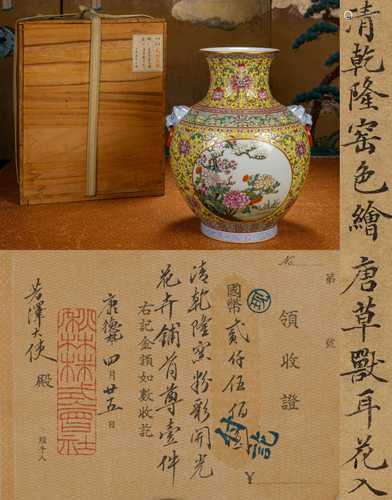 清乾隆窑色繪唐草獸耳花入
No.
第
號
領收證
國幣貳仟伍佰
付訖
清乾隆窯粉彩開光
花卉鋪首尊壹件
右記金額如數收訖
康德
四月廿五日
若澤大使殿
株式會社
經手人
¥